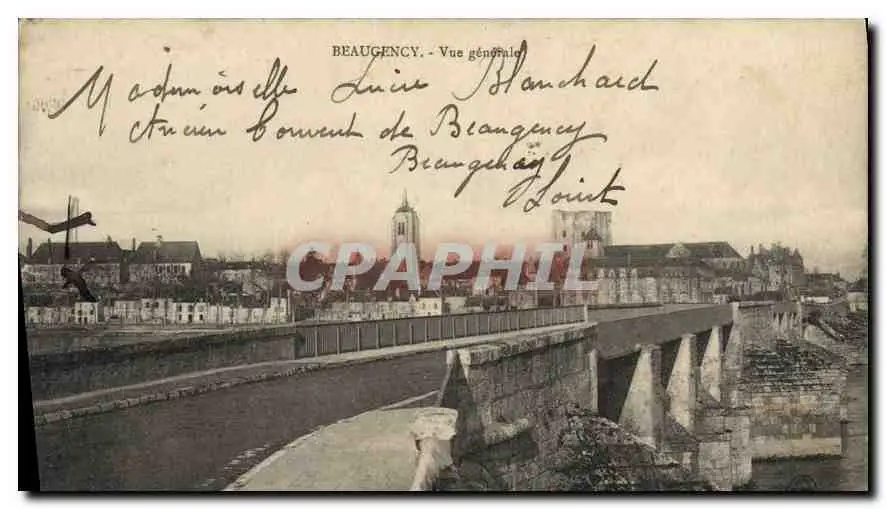 BEAUGENCY. - Vue générale
Madmoiselle Lucie Blanchard
Ancien Couvent de Beaugency
Beaugency
Loiret
CPAPHIL